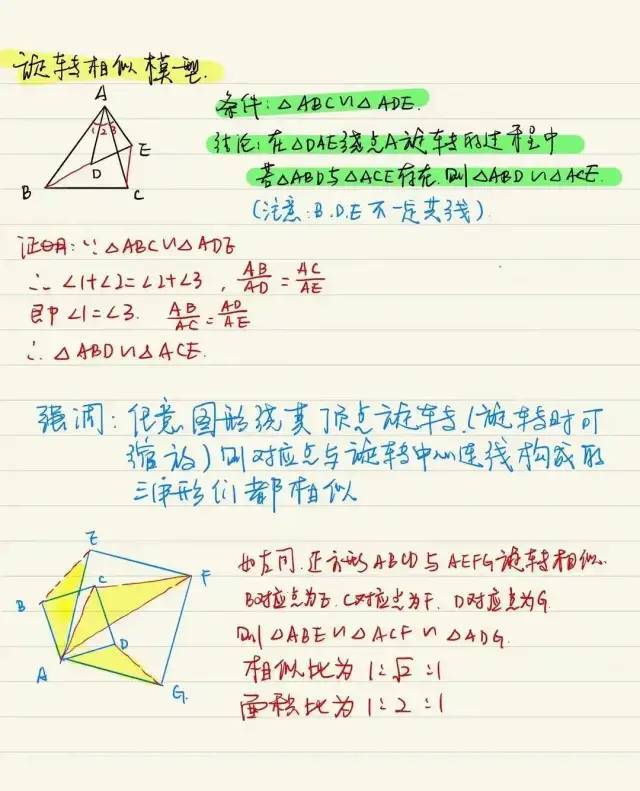 旋转相似模型.
A
1 2 3
E
D
B
C
条件: △ABC∽△ADE.
结论: 在△DAE绕点A旋转的过程中
若△ABD与△ACE存在, 则△ABD∽△ACE.
(注意: B.D.E不一定共线)
证明: ∵△ABC∽△ADE
∴∠1+∠2=∠2+∠3, AB/AD=AC/AE
即∠1=∠3. AB/AC=AD/AE
∴△ABD∽△ACE.
强调: 任意图形绕其顶点旋转(旋转时可
缩放)则对应点与旋转中心连线构成的
三角形们都相似
E
C
F
B
D
A
G
如左图, 正方形ABCD与AEFG旋转相似.
B对应点为E, C对应点为F, D对应点为G.
则△ABE∽△ACF∽△ADG.
相似比为1:√2:1
面积比为1:2:1